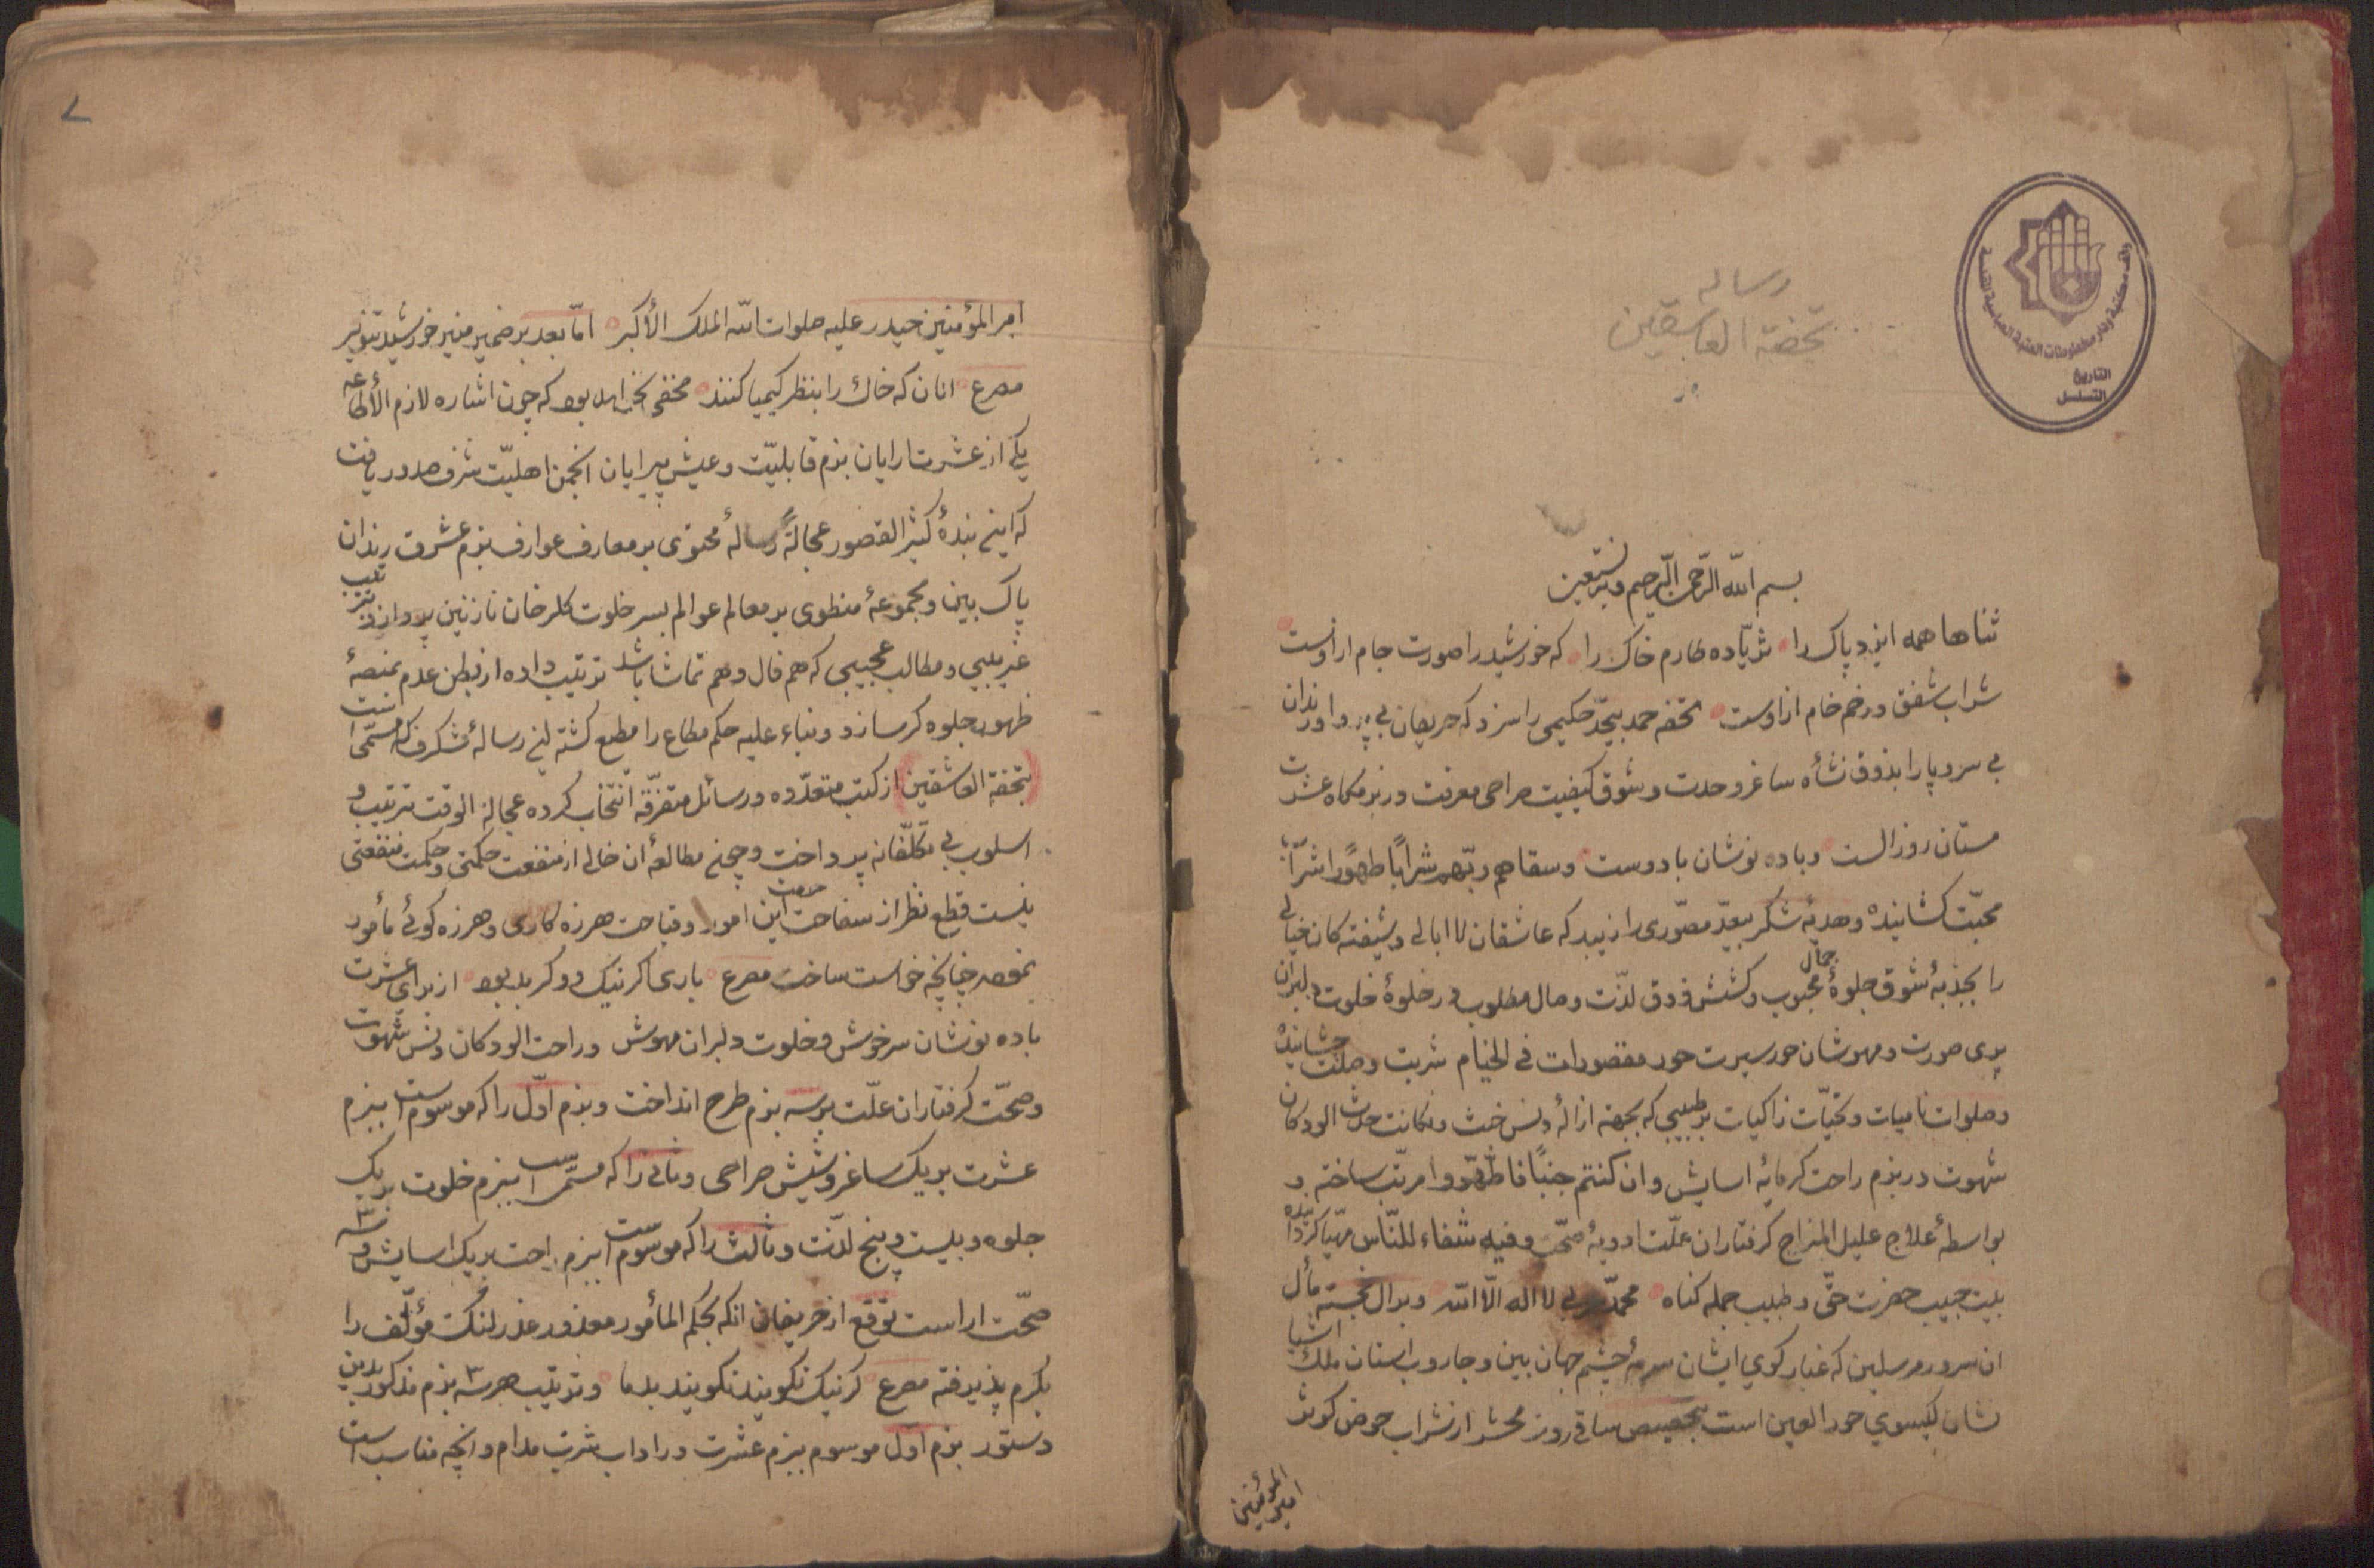 رساله
تحفة العاشقین
مكتبة ودار مخطوطات العتبة العباسية المقدسة
التاريخ
التسلسل
بسم الله الرحمن الرحیم وبه نستعین
ثناها همه ایزد پاک را ثریا ده طارم خاک را که خورشید را صورت جام ازاوست
شراب شفق در خم خام ازاوست تحفه حمد بیحد حکیمی را سزد که حریفان بی پروا و رندان
بی سر و پا را بذوق نشأه ساغر وحدت و شوق کیفیت صراحی معرفت در بزمگاه عشرت
مستان روز الست و باده نوشان باد وست وسقاهم ربهم شراباً طهوراً شراب
محبت کشانیده و هدیهٔ شکر بیعد مصوری را زیبد که عاشقان لا ابالی و شیفته کان خیالی
را بجذبهٔ شوق جلوهٔ جمال محبوب و کشش ذوق لذت وصال مطلوب در خلوهٔ خلوت دلبران
پری صورت و مهوشان حور سیرت حور مقصورات فی الخیام شربت وصلت چشانیده
وصلوات نامیات و تحیات زاکیات بر طبیبی که بجهة ازالهٔ دنس خبث و نکانت حدث الودکان
شهوت در بزم راحت کرمابهٔ اسایش وان کنتم جنباً فاطهروا مرتب ساخته و
بواسطهٔ علاج علیل المزاج کرفتاران علت ادویهٔ صحت وفیه شفاء للناس مهیا کردانیده
بیت حبیب حضرت حی و طبیب جمله کناه محمد عربی لا اله الا الله و بر ال خجسته مأل
ان سرور مرسلین که غبار کوی ایشان سرمهٔ چشم جهان بین و جاروب استان ملک اشیا
نشان کیسوی حور العین است بتخصیص ساقی روز محشر از شراب حوض کوثر
امیر المؤمنین
۷
امر المؤمنین حیدر علیه صلوات الله الملک الأکبر اما بعد بر ضمیر منیر خورشید تنویر
مصرع انان که خاک را بنظر کیمیا کنند مخفی نخواهد بود که چون اشاره لازم الأطاعه
یکی از عشرت ارایان بزم قابلیت و عیش پیرایان انجمن اهلیت شرف صدور یافت
که این بندهٔ کثیر القصور عجالةً رسالهٔ محتوی بر معارف عوارف بزم عشرت رندان
پاک بین و مجموعهٔ منطوی بر معالم عوالم بسر خلوت کلرخان نازنین پردازد
غریبی و مطالب عجیبی که هم فال و هم تماشا باشد ترتیب داده از بطن عدم بمنصهٔ
ظهور جلوه کر سازد و بناء علیه حکم مطاع را مطیع کشته این رسالهٔ شکرف که مسمی است
بتحفة العاشقین از کتب متعدده و رسائل متفرقه انتخاب کرده عجالة الوقت بترتیب و
اسلوب بی تکلفانه پرداخت و چون مطالعهٔ ان خالی از منفعت حکمتی و حکمت منفعتی
نیست قطع نظر از سفاحت این امور و قباحت هرزه کاری و هرزه کوئی مأمور
بنوعی چنانچه خواست ساخت مصرع باری اکر نیک و کر بد بود از برای عشرت
باده نوشان سرخوش و خلوت دلبران مهوش و راحت الودکان دنس شهوت
و صحت کرفتاران علت بر سه بزم طرح انداخت و بزم اول را که موسوم است ببزم
عشرت بر یک ساغر و شش صراحی و ثانی را که مسمی است ببزم خلوت بر یک
جلوه و بیست و پنج لذت و ثالث را که موسوم است ببزم راحت بر یک اسایش و سه
صحت اراست توقع از حریفان انکه بحکم المأمور معذور عذر لنک مؤلف را
بکرم پذیرفته مصرع کر نیک نکویند نکویند بد ما و ترتیب هر سه بزم مذکور بدین
دستور بزم اول موسوم ببزم عشرت در اداب شرب مدام و انچه مناسب است